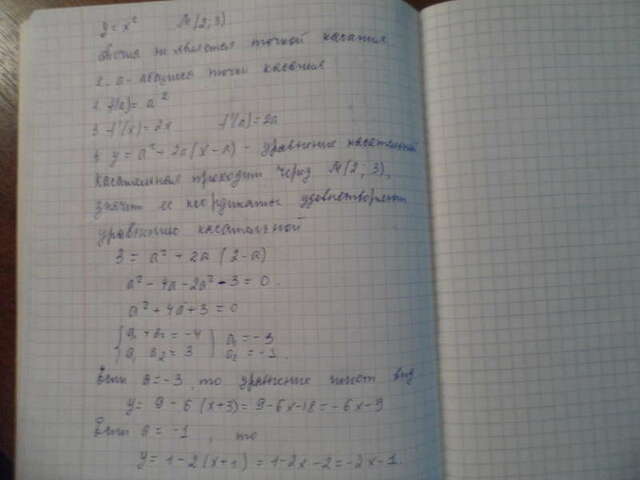 y = x² M(2; 3)
точка не является точкой касания
1. a - абцисса точки касания
2. f(a) = a²
3. f'(x) = 2x f'(a) = 2a
4. y = a² - 2a(x-a) - уравнение касательной
Касательная проходит через M(2; 3),
значит ее координаты удовлетворяют
уравнению касательной
3 = a² + 2a(2-a)
a² - 4a - 2a² - 3 = 0.
a² + 4a + 3 = 0
{ a₁ + a₂ = -4 } a₁ = -3
a₁ a₂ = 3 a₂ = -1.
Если a = -3, то уравнение имеет вид
y = 9 - 6(x+3) = 9 - 6x - 18 = -6x - 9
Если a = -1, то
y = 1 - 2(x+1) = 1 - 2x - 2 = -2x - 1.